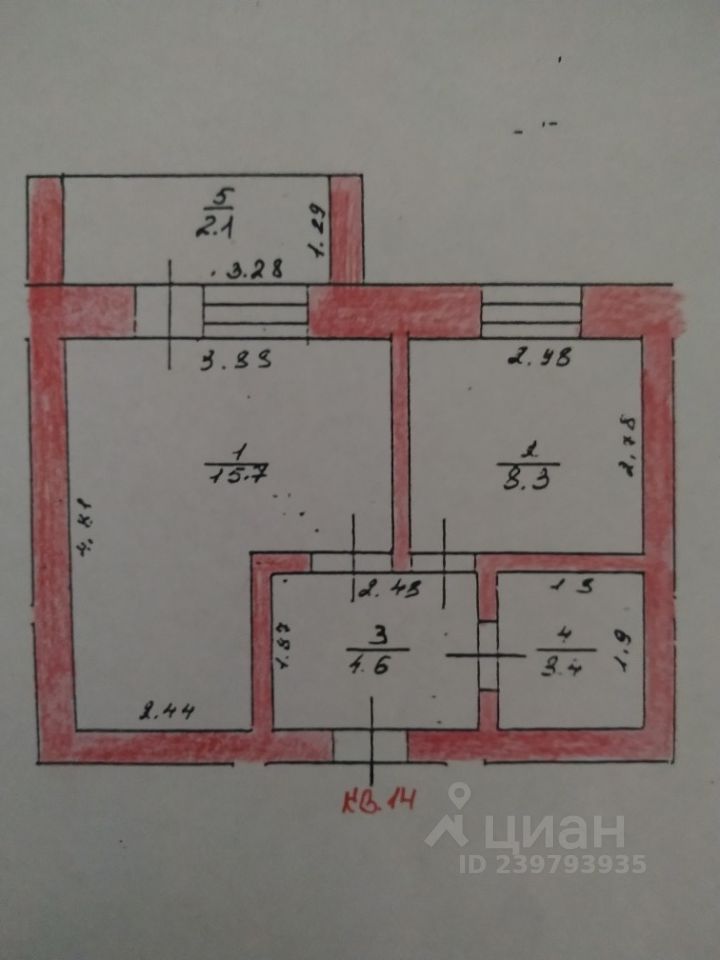 5
2.1
1.29
3.28
2.98
2,78
1
15.7
2
8.3
4,81
2.43
1.87
3
4.6
4
3.4
1,9
2.44
КВ.14
циан
ID 239793935